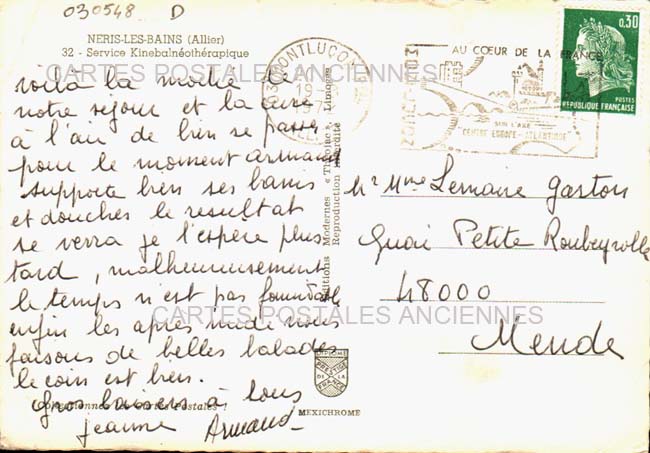 030548 D
NERIS-LES-BAINS (Allier)
32 - Service Kinebalnéothérapique
CARTES POSTALES ANCIENNES
voilà la moitié de
notre sejour et la cure
à l'air de bien se passer
pour le moment armand
supporte bien ses bains
et douches le resultat
se verra je l'espère plus
tard, malheureusement
le temps n'est pas formidable
enfin les après midi nous
faisons de belles balades
le coin est bien.
Gros baisers à tous
Jeanne Armand
Collectionnez les Cartes Postales !
Editions Modernes « Théojac », Limoges
Reproduction Interdite
PRESTIGE DE LA FRANCE
MEXICHROME
03 MONTLUÇON
AU CŒUR DE LA FRANCE
SUR L'AXE
CENTRE EUROPE - ATLANTIQUE
0,30
POSTES
REPUBLIQUE FRANÇAISE
Mr Mme Lemaire Gaston
Quai Petite Roubeyrolle
48000
Mende
CARTES POSTALES ANCIENNES